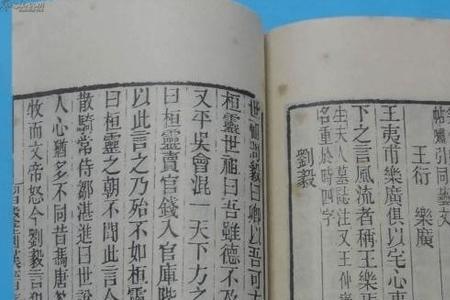 引同
王衍 樂廣
王夷甫樂廣俱以宅心事
下之言風流者稱王樂
生夫人墓誌注又王仲
名重於時四字
劉毅
毅曰卿以吾可方
桓靈世祖曰吾雖德不
又平吳會混一天下方之
曰桓靈賣官錢入官庫陛
以此言之乃殆不如桓靈
曰桓靈之朝不聞此言
散騎常侍鄒湛進曰世說
人心猶多不同昔馮唐
牧而文帝怒今劉毅言